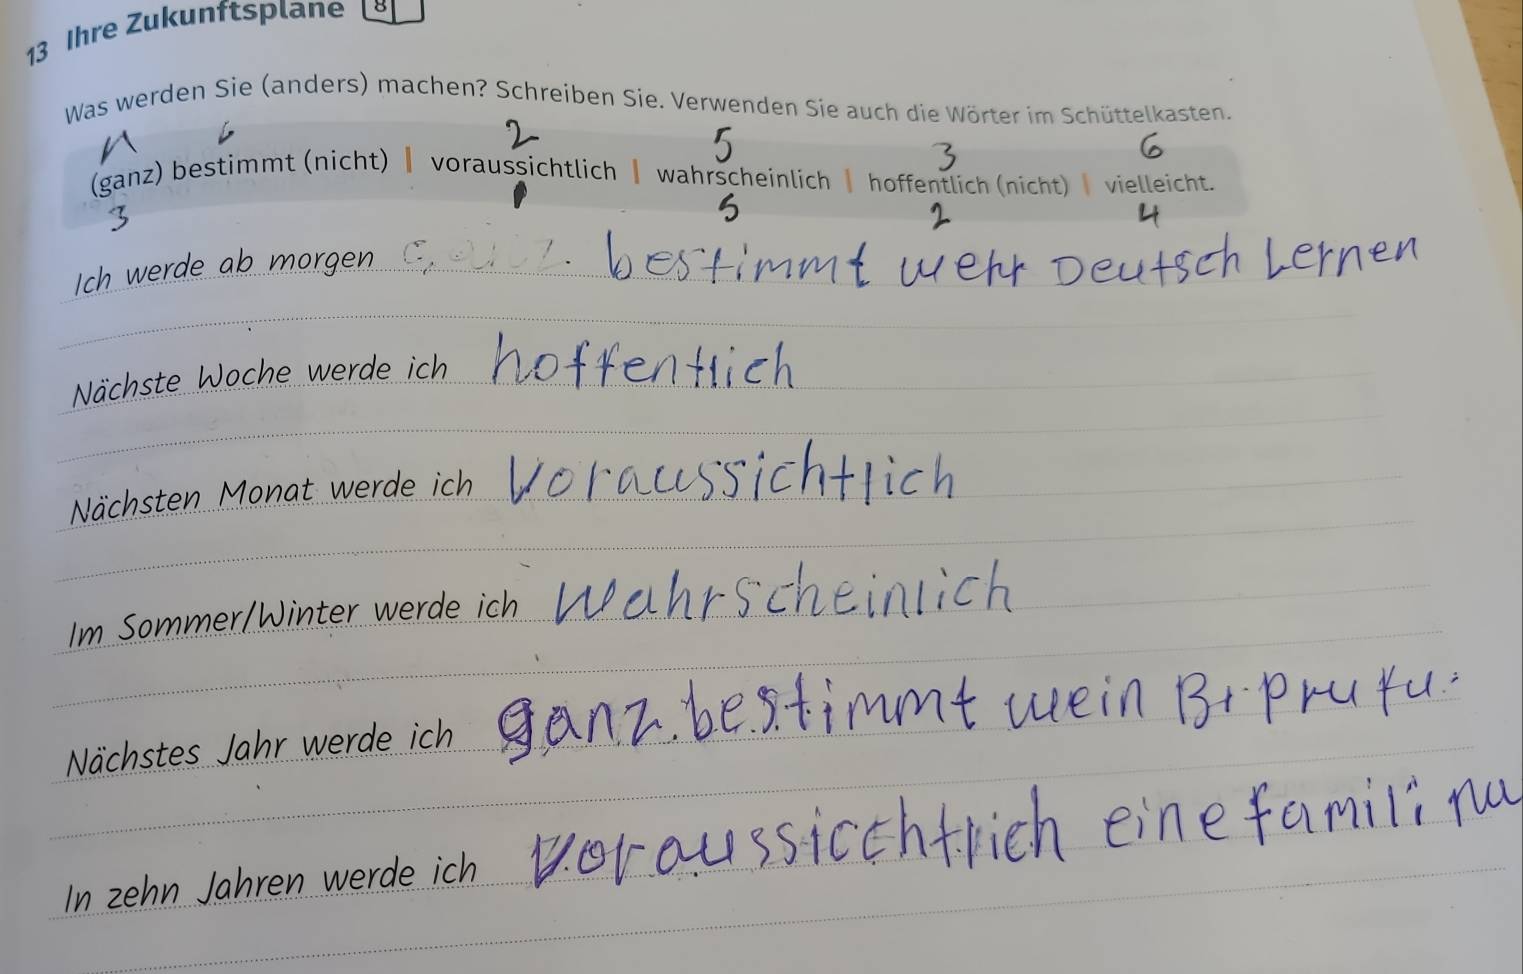 13 Ihre Zukunftspläne 8
Was werden Sie (anders) machen? Schreiben Sie. Verwenden Sie auch die Wörter im Schüttelkasten.
2 5 3 6
(ganz) bestimmt (nicht) | voraussichtlich | wahrscheinlich | hoffentlich (nicht) | vielleicht.
3 1 5 2 4
Ich werde ab morgen ganz. bestimmt mehr Deutsch Lernen
Nächste Woche werde ich hoffentlich
Nächsten Monat werde ich Voraussichtlich
Im Sommer/Winter werde ich Wahrscheinlich
Nächstes Jahr werde ich ganz. bestimmt mein
In zehn Jahren werde ich Voraussicchtlich eine